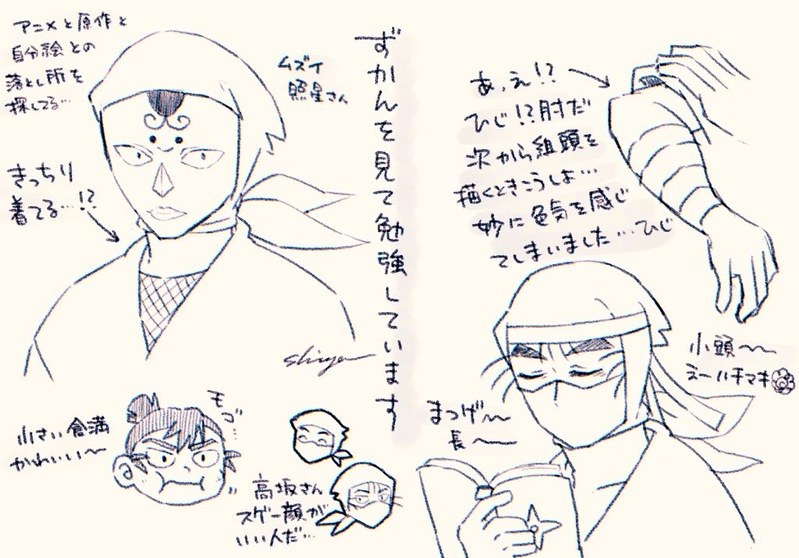 アニメと原作と
自分絵との
落とし所を
探してる…
ムズイ
照星さん
きっちり
着てる…!?
ずかんを見て勉強しています
あ、え!?
ひじ!?肘だ
次から組頭を
描くときこうしよ…
妙に色気を感じ
てしまいました…ひじ
小頭〜〜
ミーハチマキ
まつげ〜
長〜
モゴ…
小さい倉満
かわいい〜
高坂さん
スゲー顔が
いい人だ…